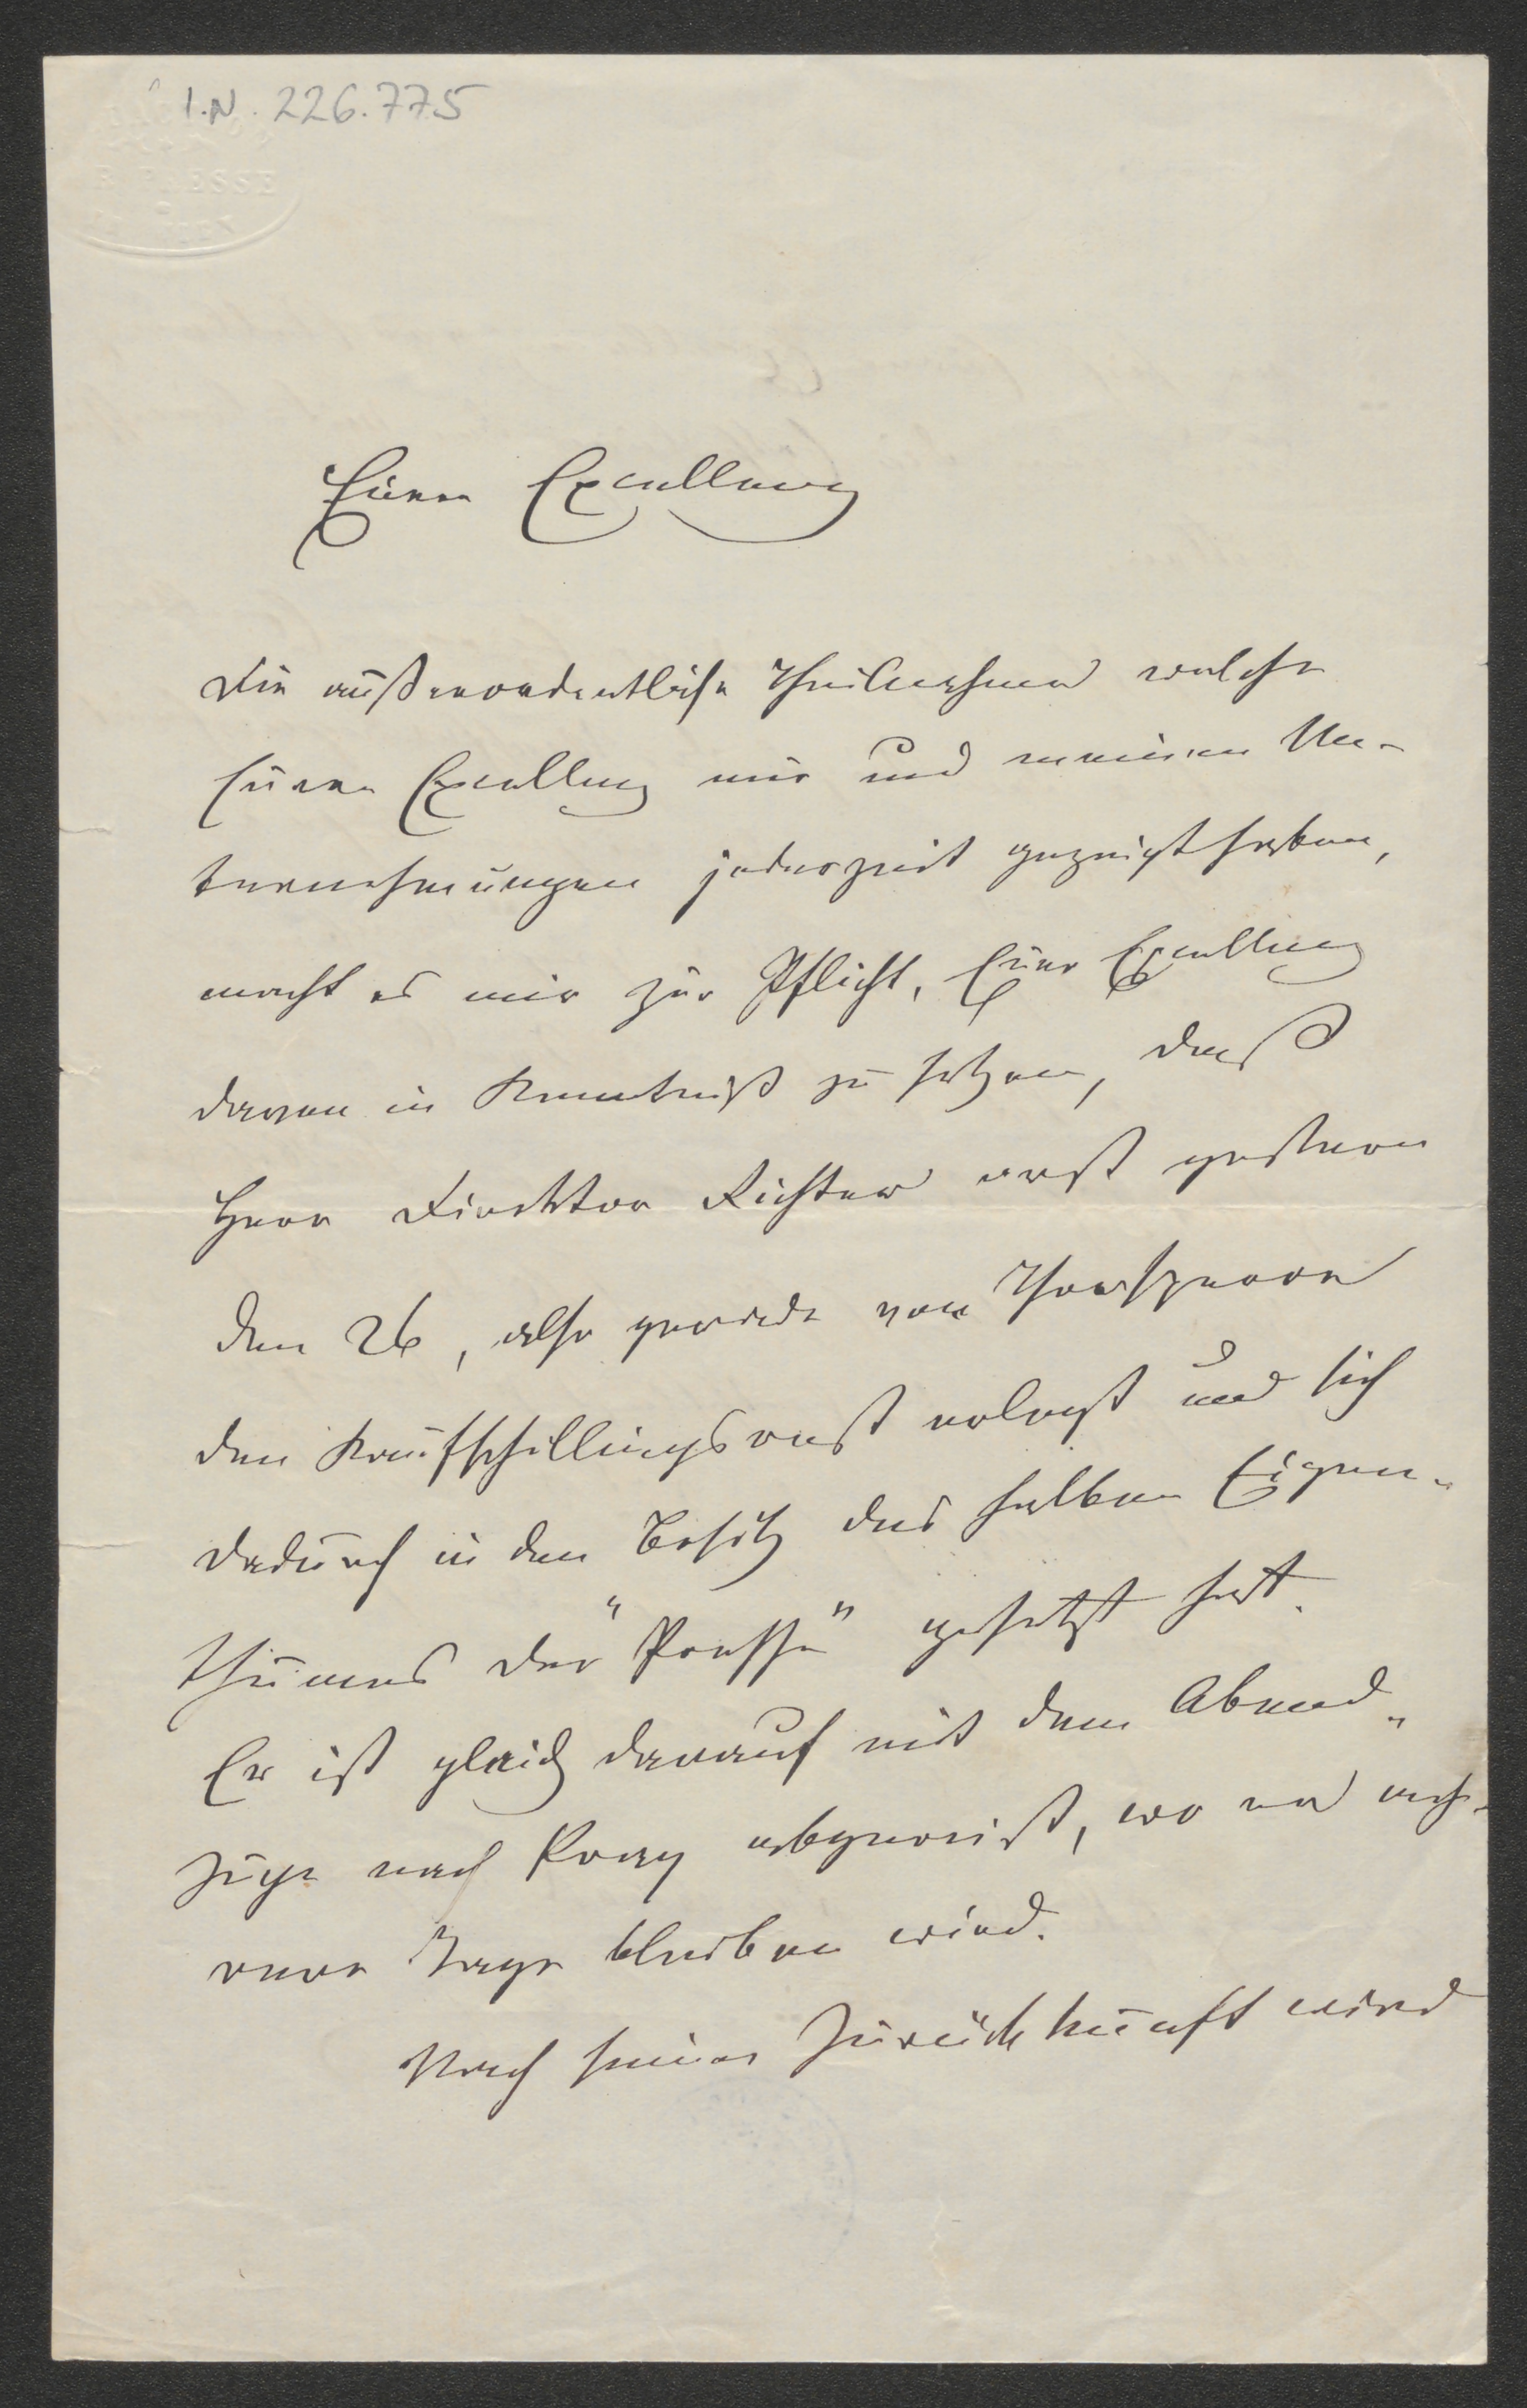 I.N. 226.775
PRESSE
WIEN
Eurer Excellenz
Die außerordentliche Theilnahme welche
Eurer Excellenz mir und meinen Un-
ternehmungen jederzeit gezeigt haben,
macht es mir zur Pflicht, Euer Excellenz
davon in Kenntniß zu setzen, daß
Herr Direktor Richter erst gestern
den 26, also gerade vor Thorsperre
den Kaufschillingsrest erlegt und sich
dadurch in den Besitz des halben Eigen-
thumes der "Presse" gesetzt hat.
Er ist gleich darauf mit dem Abend-
zuge nach Prag abgereist, wo er meh-
rere Tage bleiben wird.
Nach seiner Zurückkunft wird